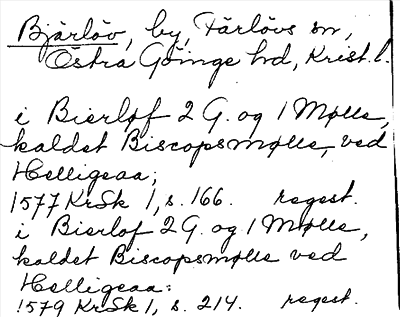 Bjärlöv, by, Färlövs sn,
Östra Göinge hd, Krist. l.
i Bierløf 2 G. og 1 Mølle,
kaldet Biscopsmølle, ved
Helligeaa;
1577 KrSk 1, s. 166. regest.
i Bierlof 2 G. og 1 Mølle,
kaldet Biscopsmølle ved
Helligeaa:
1579 KrSk 1, s. 214. regest.